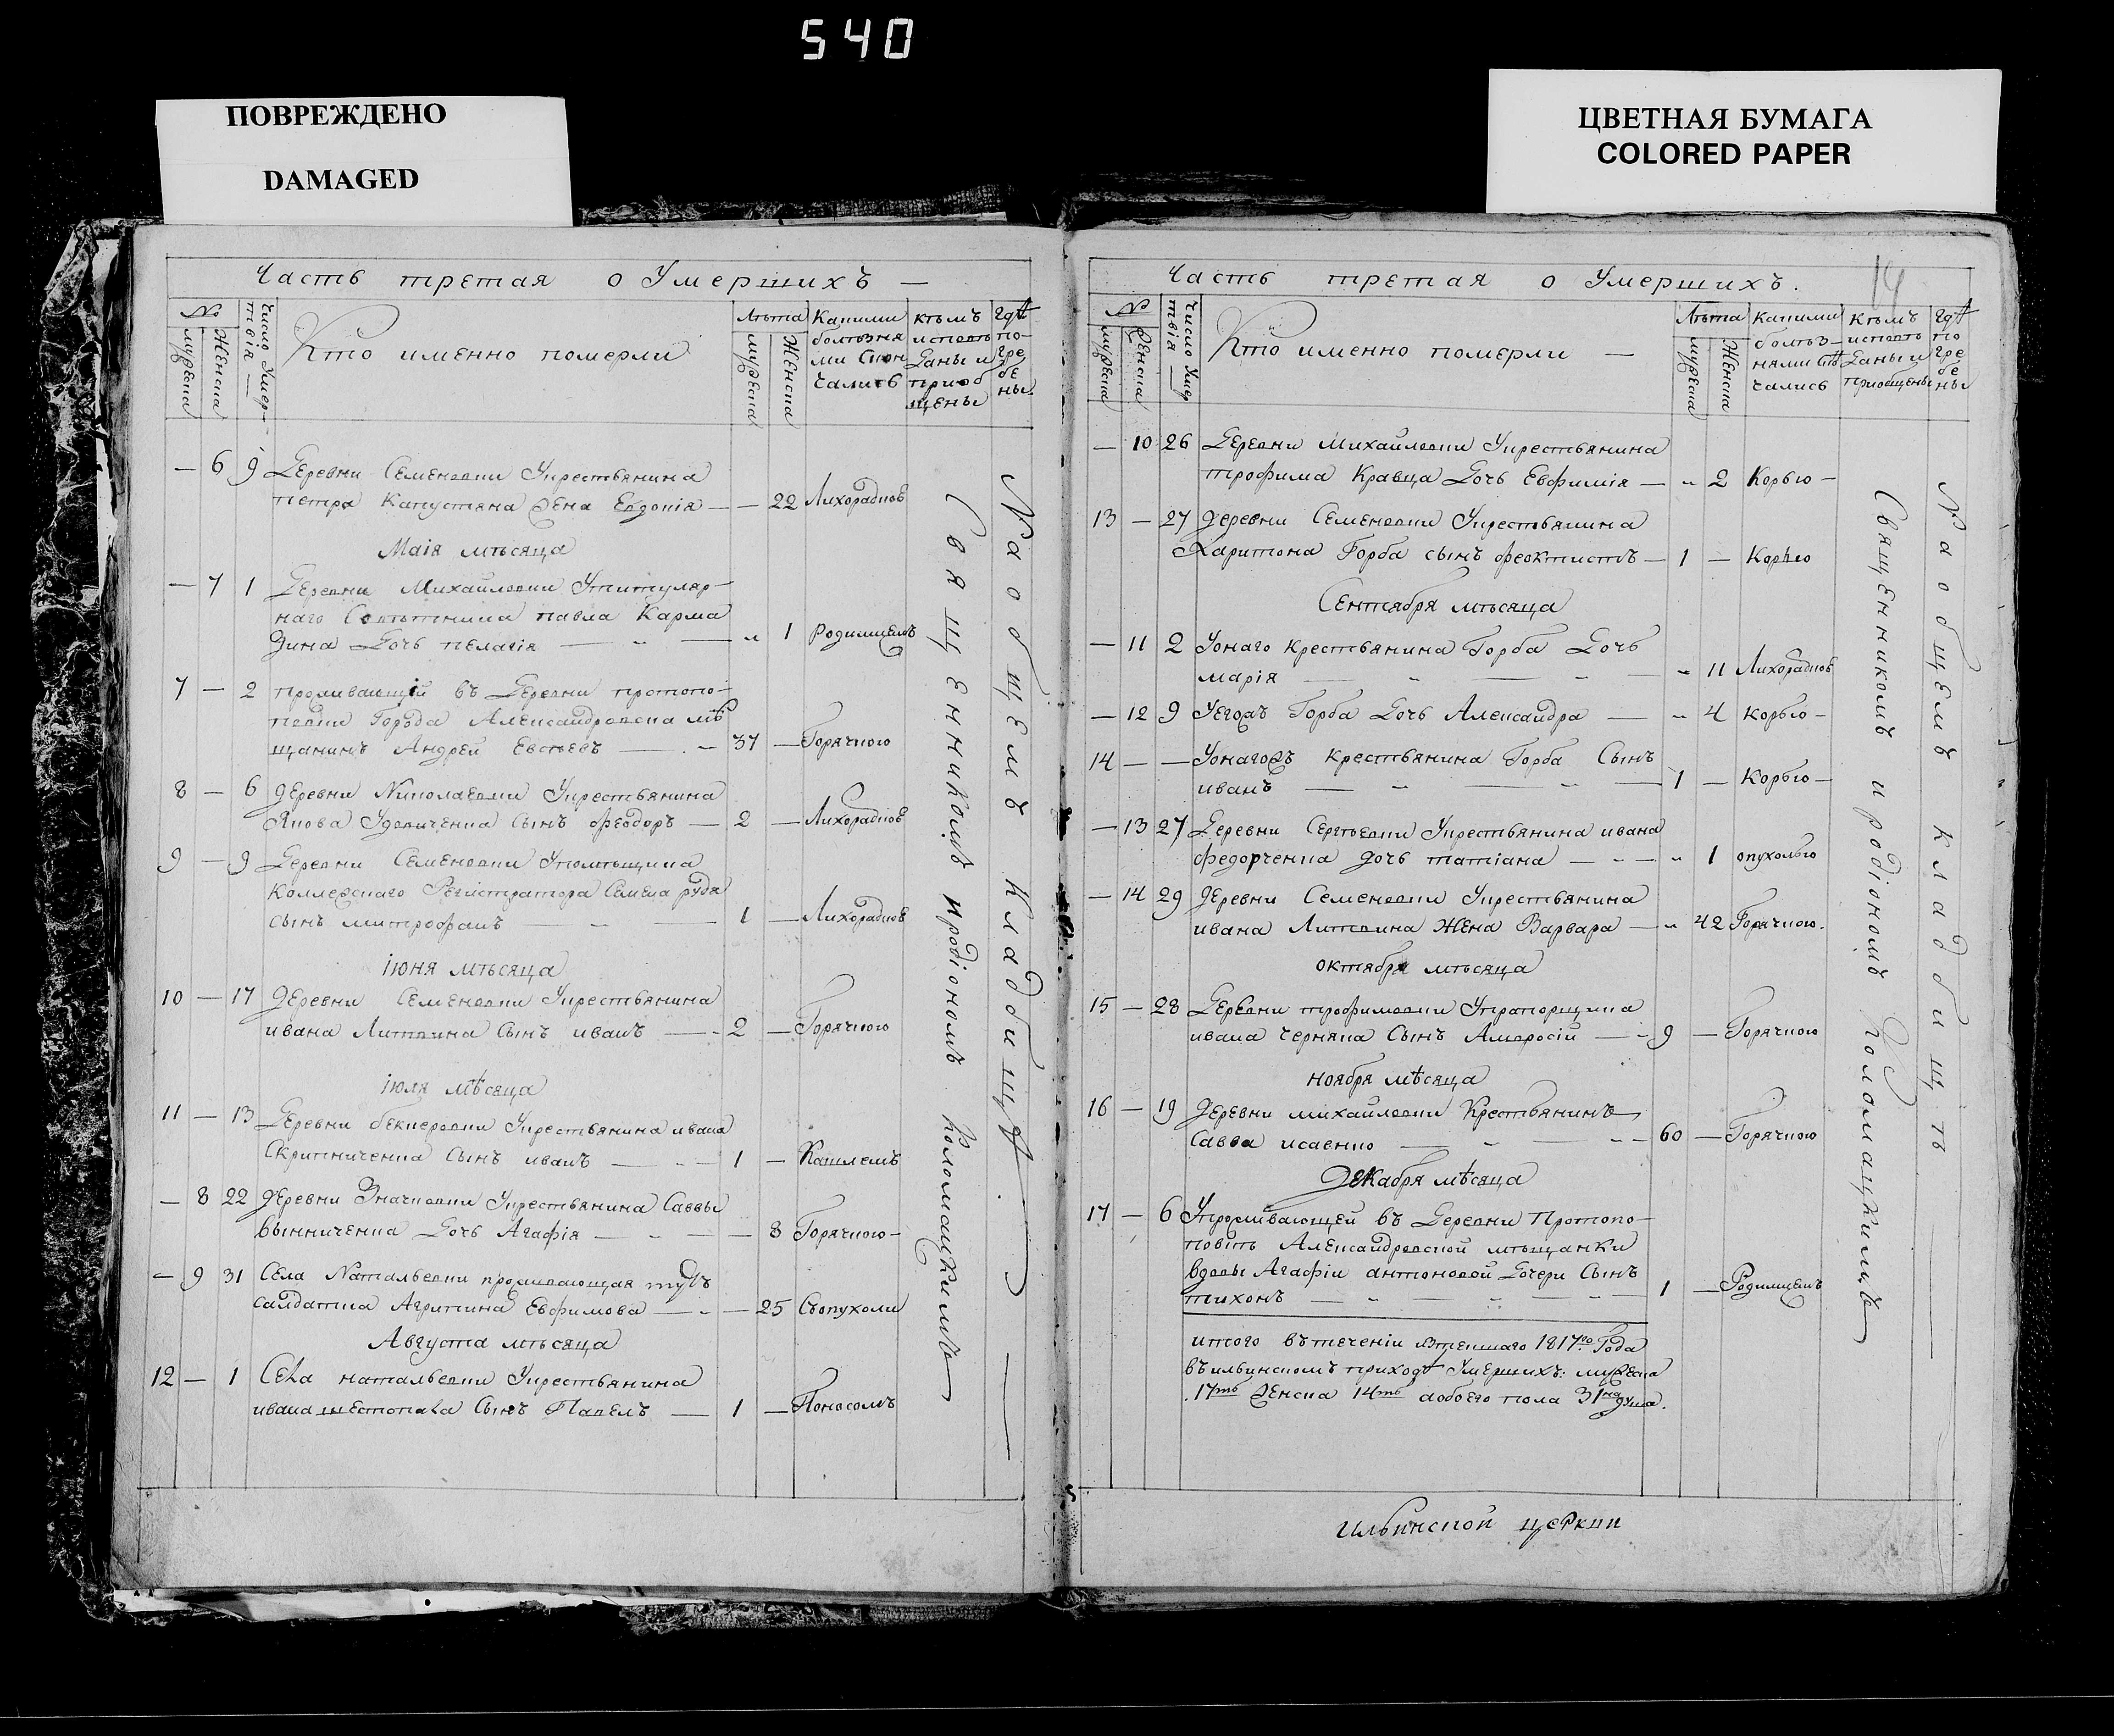 540
ПОВРЕЖДЕНО
DAMAGED
ЦВЕТНАЯ БУМАГА
COLORED PAPER
Часть третая о Умершихъ —
№
мужеска
Женска
Число Умертвія
Кто именно померли
Лѣта
мужеска
Женска
Какими
болѣзня
ми Скон
чались
кѣмъ
исповѣ
даны и
приоб
щены
гдѣ
по-
гре
бе
ны
— 6 9 Деревни Семеновки Укрестьянина
петра Капустяна жена Евдокія — — 22 Лихорадкою
Маія мѣсяца
— 7 1 Деревни Михайловки Утитуляр-
наго Совѣтника павла Карма
зина Дочь пелагія — „ — „ 1 родимцемъ
7 — 2 проживающій въ Деревни протопо-
повки Города Александровска мѣ
щанинъ Андрей Евсѣевъ — 37 — Горячкою
8 — 6 деревни Николаевки Укрестьянина
Якова Удовиченка Сынъ феодоръ — 2 — Лихорадкою
9 — 9 Деревни Семеновки Упомѣщика
Коллежскаго Регистратора Семена рудя
сынъ митрофанъ — „ — 1 — Лихорадкою
іюня мѣсяца
10 — 17 деревни Семеновки Укрестьянина
ивана Литвина Сынъ иванъ — 2 — Горячкою
іюля мѣсяца
11 — 13 Деревни бекиревки Укрестьянина ивана
Скрипниченка Сынъ иванъ — „ — 1 — Кашлемъ
— 8 22 деревни Значковки Укрестьянина Саввы
винниченка Дочь Агафія — „ — — 8 Горячкою —
— 9 31 Села Натальевки проживающая тутъ
салдатка Агрипина Евфимова — „ — 25 Съопухоли
Августа мѣсяца
12 — 1 Села натальевки Укрестьянина
ивана шестопала Сынъ Павелъ — 1 — Поносомъ
Священникомъ иродіономъ Коломацкимъ
На общемъ кладбищѣ
14
Часть третая о Умершихъ.
№
мужеска
Женска
Число Умер
твія
Кто именно померли —
Лѣта
мужеска
Женска
какими
болѣз-
нями Скон
чались
кѣмъ
исповѣ
даны и
приобщены
гдѣ
по
гре
бе
ны
— 10 26 Деревни Михайловки Укрестьянина
трофима Кравца Дочь Евфимія — „ 2 Корью —
13 — 27 деревни Семеновки Укрестьянина
Харитона Горба сынъ феоктистъ — 1 — Корью
Сентября мѣсяца
— 11 2 Уонаго крестьянина Горба Дочь
марія — „ — „ — „ 11 Лихорадкою
— 12 9 Уегожъ Горба Дочь Александра — „ 4 Корью —
14 — — Уонагожъ крестьянина Горба Сынъ
иванъ — „ — „ — 1 — Корью —
— 13 27 Деревни Сергѣевки Укрестьянина ивана
федорченка дочь татіана — „ — „ 1 опухолью
— 14 29 деревни Семеновки Укрестьянина
ивана Литвина Жена Варвара — „ 42 Горячкою.
октября мѣсяца
15 — 28 Деревни трофимовки Упрапорщика
ивана черняка Сынъ Амвросій — 9 — Горячкою
ноября мѣсяца
16 — 19 деревни михайловки Крестьянинъ
Савва исаенко — „ — „ 60 — Горячкою
Декабря мѣсяца
17 — 6 Упроживающей въ Деревни Протопо-
повкѣ Александровской мѣщанки
вдовы Агафіи антоновой Дочери Сынъ
тихонъ — „ — „ — „ — 1 — Родимцемъ
итого въ теченіи 1817го Года
въ ильинскомъ приходѣ Умершихъ: мужеска
17ть женска 14ть аобоего пола 31на душа.
Священникомъ иродіономъ Коломацкимъ
На общемъ кладбищѣ
Ильинской церкви